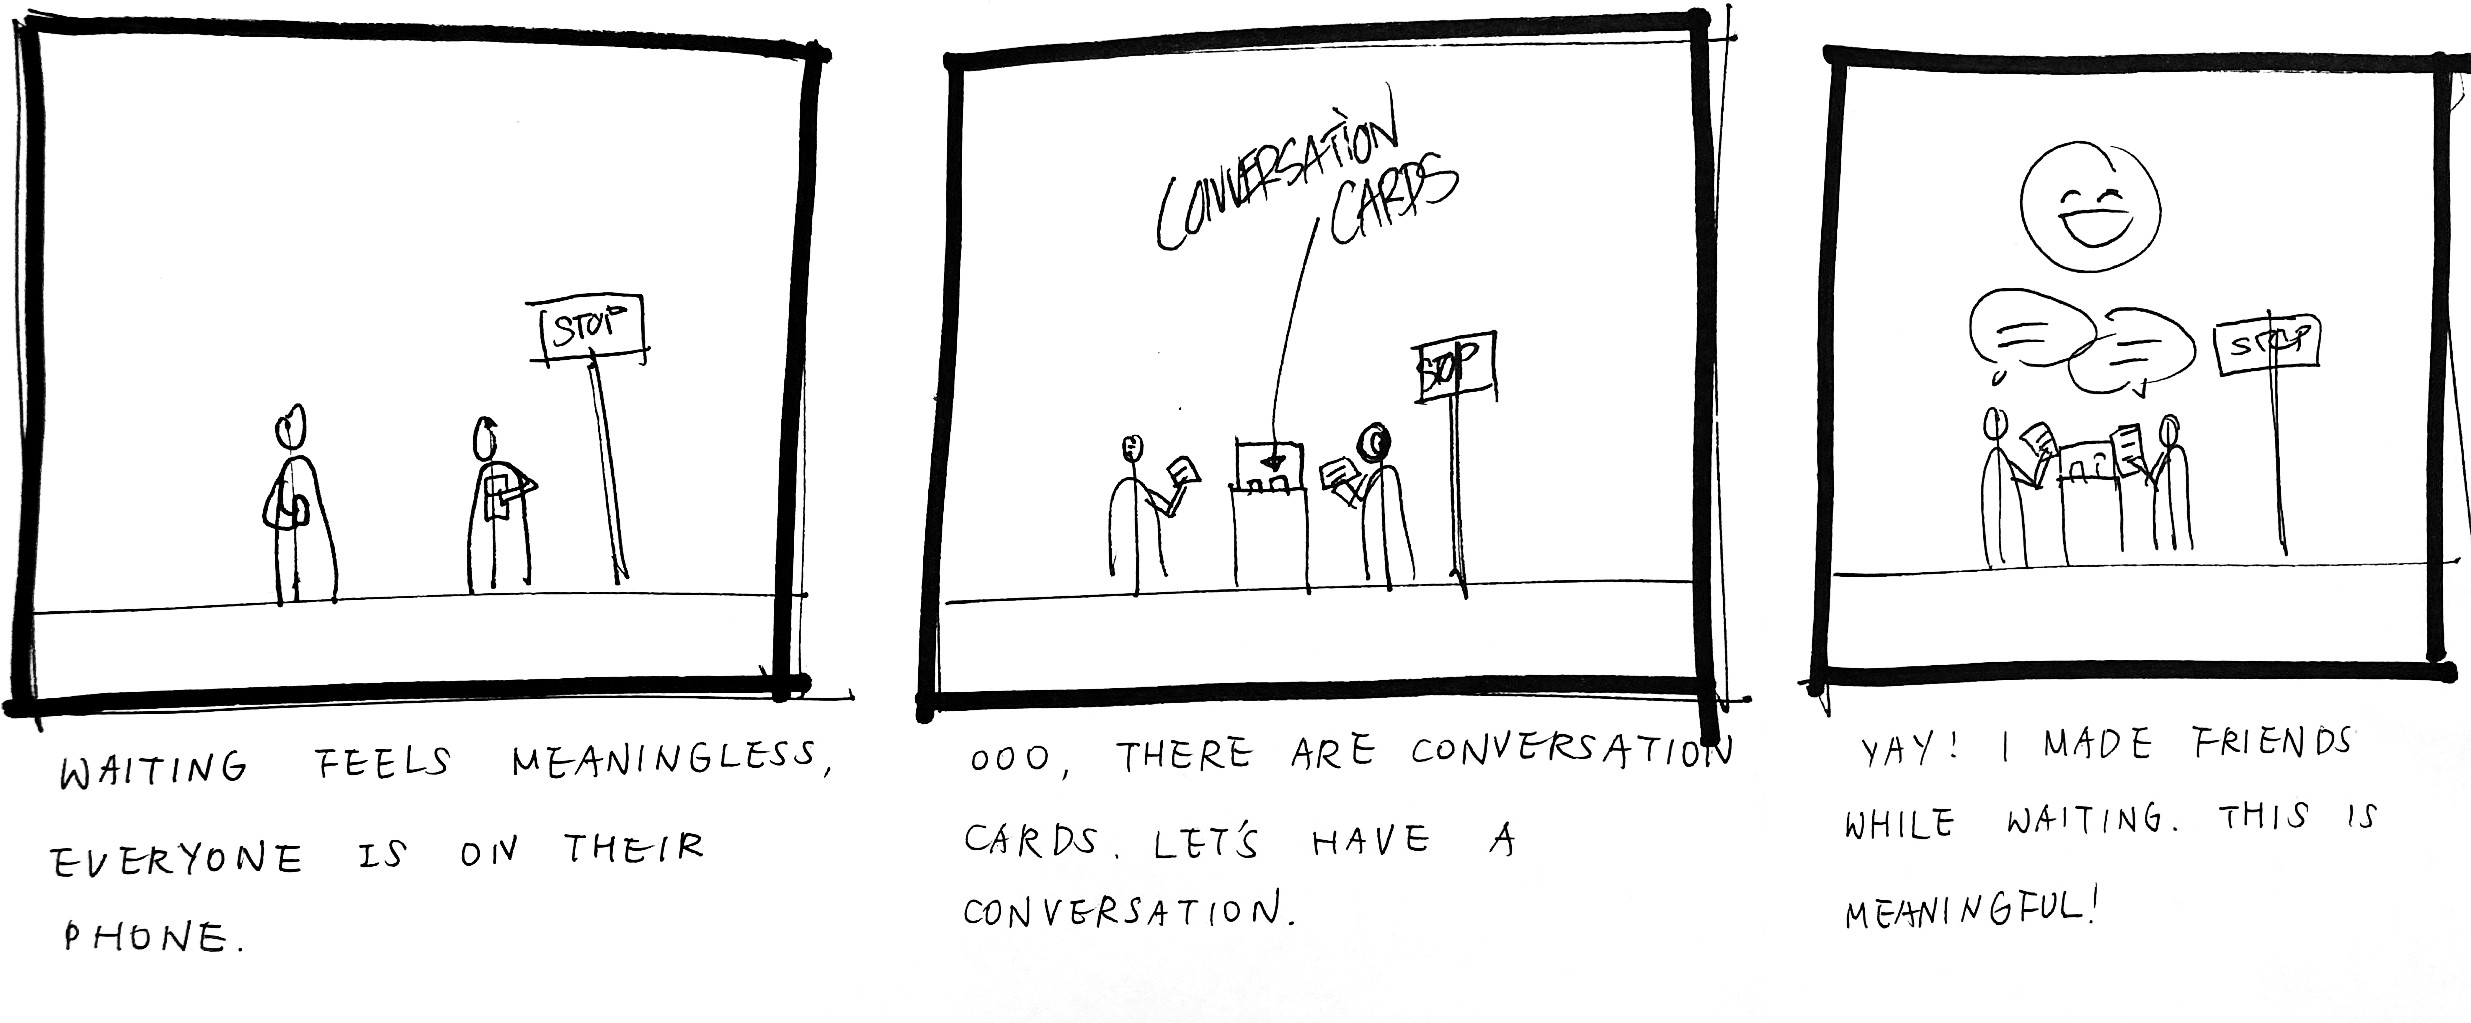 STOP
WAITING FEELS MEANINGLESS,
EVERYONE IS ON THEIR
PHONE.
CONVERSATION
CARDS
STOP
OOO, THERE ARE CONVERSATION
CARDS. LET'S HAVE A
CONVERSATION.
STOP
YAY! I MADE FRIENDS
WHILE WAITING. THIS IS
MEANINGFUL!